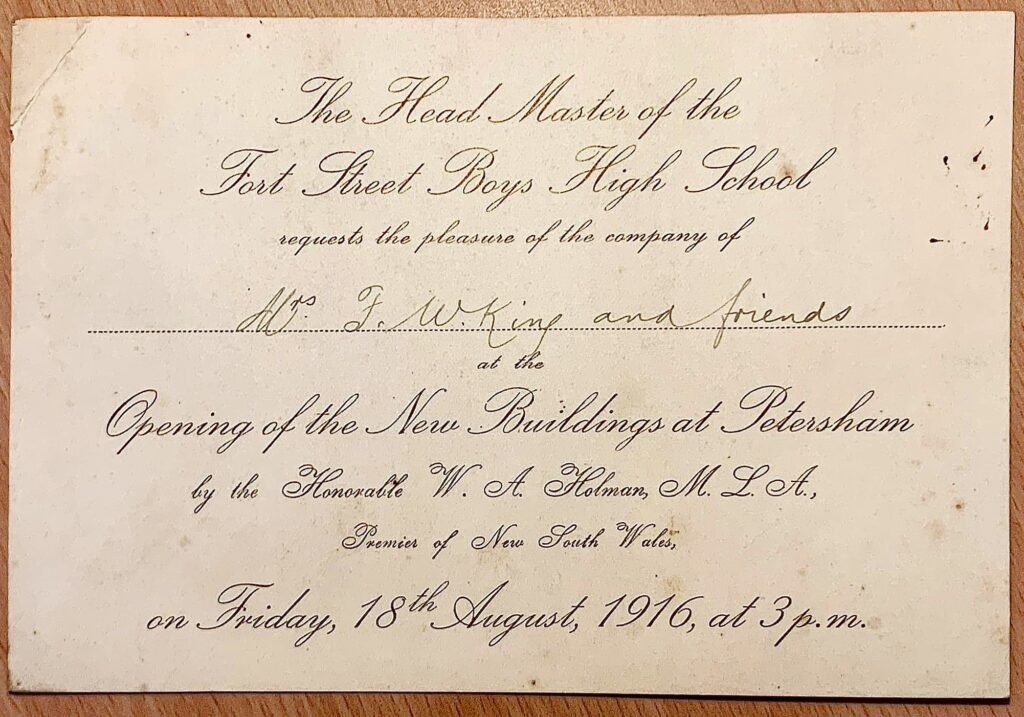 The Head Master of the
Fort Street Boys High School
requests the pleasure of the company of
Mrs F. W. King and friends
at the
Opening of the New Buildings at Petersham
by the Honorable W. A. Holman, M. L. A.,
Premier of New South Wales,
on Friday, 18th August, 1916, at 3 p.m.